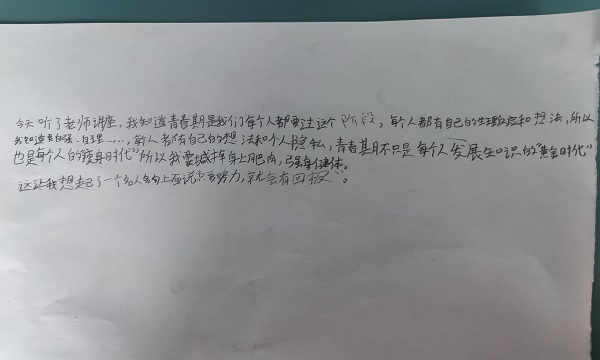 今天听了老师讲座，我知道青春期是我们每个人都要过这个阶段，每个人都有自己的生理和想法，所以
我知道要自强、自理……，每人都有自己的想法和个人隐私，青春期不只是每个人发展生识的“黄金时代”
也是每个人的瘦身时代”所以我要减掉身上肥肉，强身健体。
这让我想起了一个名人名句上面说只要努力，就会有回报。